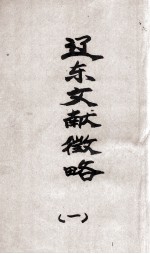 辽东文献徵略
(一)